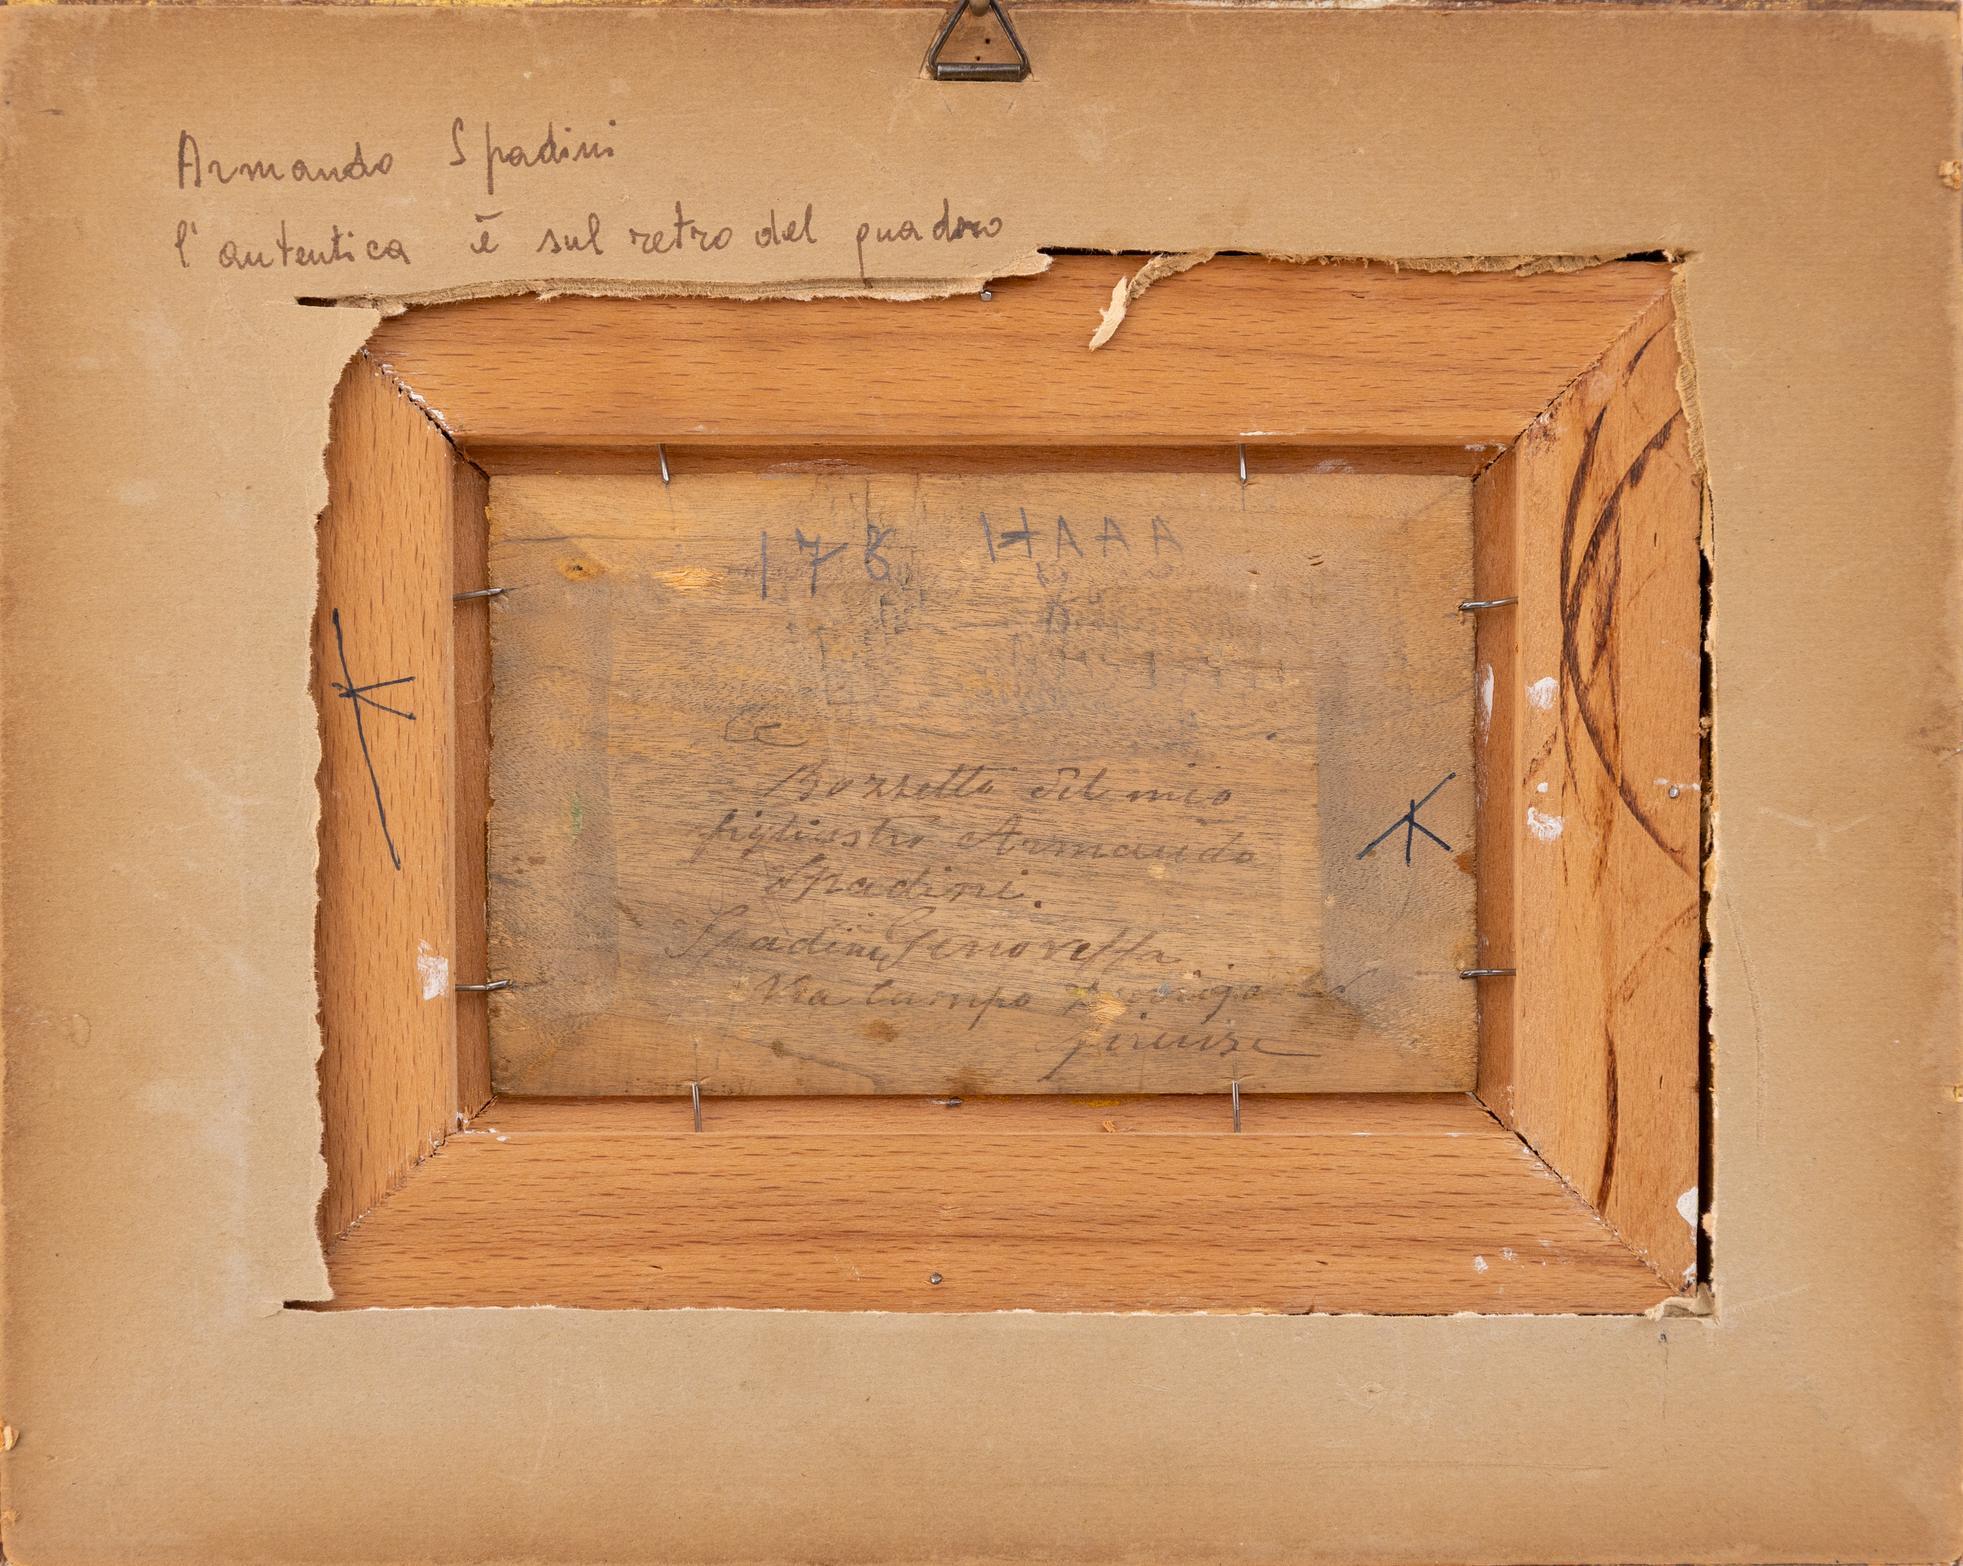 Armando Spadini
l'autentica è sul retro del quadro
178 HAAA
Bozzetto del mio
figliastro Armando
Spadini.
Spadini Genoveffa
Via Campo
Firenze
K
K